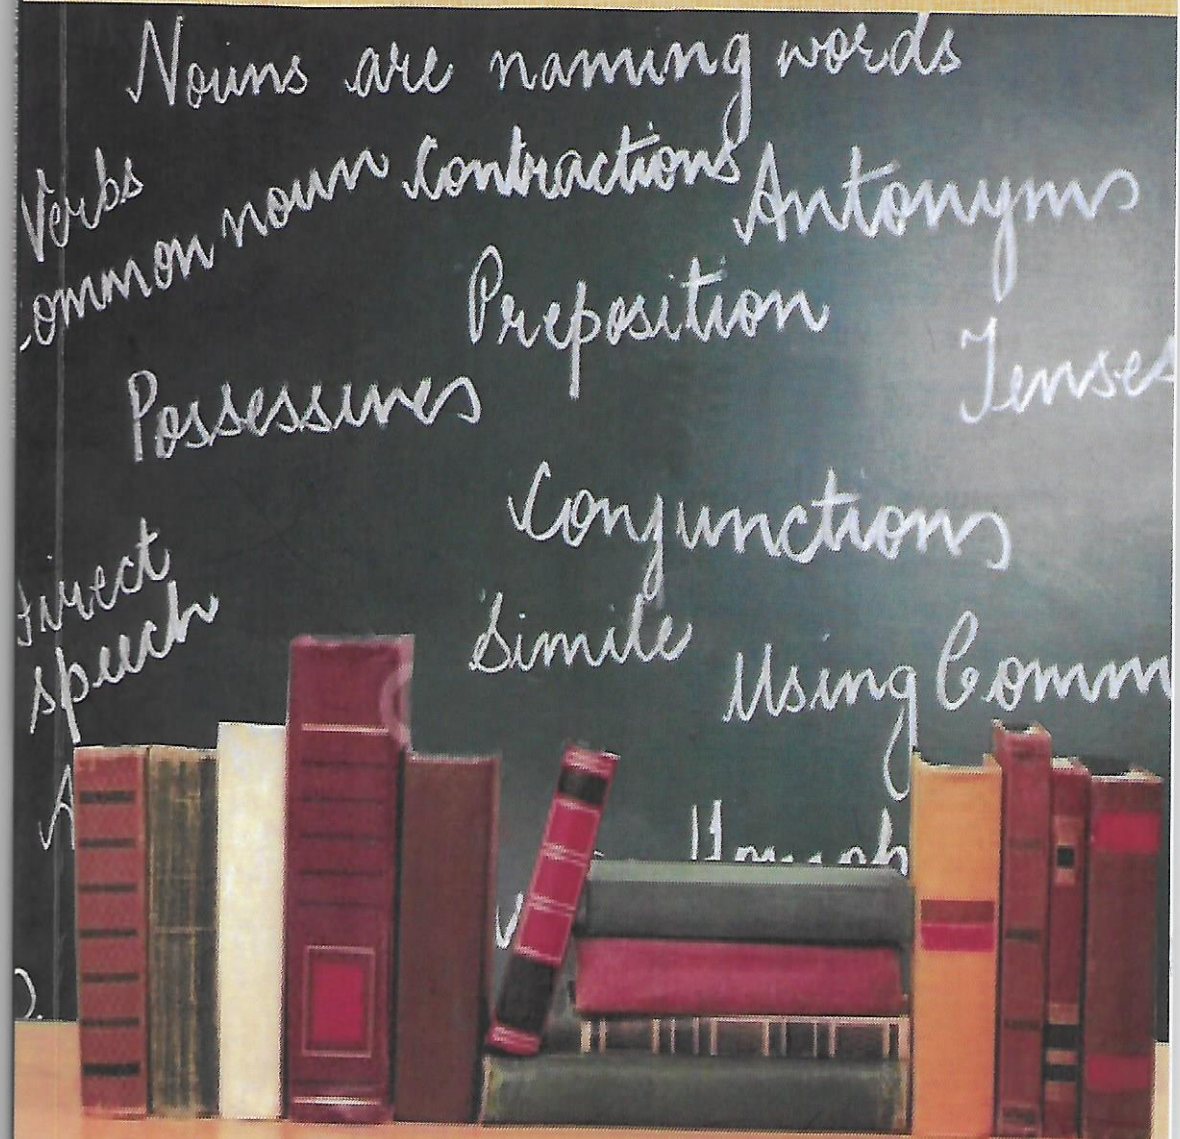 Nouns are naming words
Verbs
ommon noun
Contractions
Antonyms
Preposition
Tenses
Possessives
Conjunctions
irect
speech
Simile
Using Comm